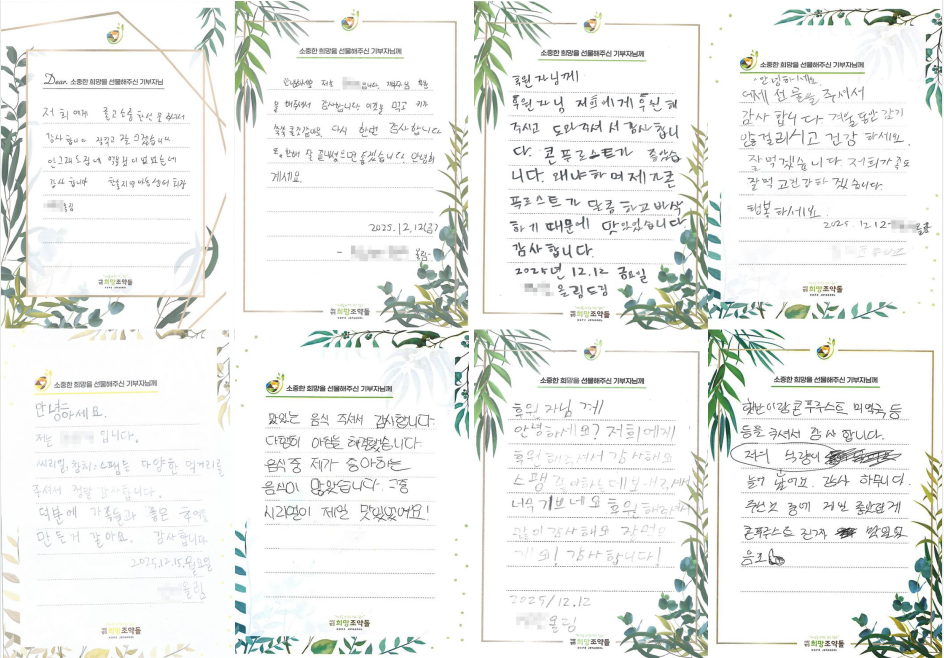 Dear. 소중한 희망을 선물해주신 기부자님께
저희에게
감사합니다 잘먹고 잘 크겠습니다
감사합니다
올림
희망조약돌
소중한 희망을 선물해주신 기부자님께
안녕하세요 저는 입니다. 후원
을 해주셔서 감사합니다 이것을 먹고 키가
쑥쑥 클것같아요. 다시 한번 감사합니다
또, 한해 잘 끝내셨으면 좋겠습니다 안녕히
계세요.
2025.12.12(금)
- 올림-
희망조약돌
소중한 희망을 선물해주신 기부자님께
후원자님께
후원자님 저희에게 후원해
주시고 도와주셔서 감사합니
다. 콘푸로스트가 좋았습
니다. 왜냐하며 제가 콘
푸로스트가 달콤하고 바삭
하기 때문에 맛있었습니다.
감사합니다.
2025년 12.12 금요일
올림드림
희망조약돌
소중한 희망을 선물해주신 기부자님께
안녕하세요.
선물을 주셔서
감사합니다 겨울동안 감기
안걸리시고 건강하세요.
잘먹겠습니다. 저희가족도
잘먹고 건강하겠습니다.
행복하세요.
2025. 12.12-
희망조약돌
소중한 희망을 선물해주신 기부자님께
안녕하세요.
저는 입니다.
씨리얼, 참치, 스팸등 다양한 먹거리를
주셔서 정말 감사합니다.
덕분에 가족들과 좋은 추억을
만든거 같아요. 감사합니다
2025.12.15.월요일
올림
희망조약돌
소중한 희망을 선물해주신 기부자님께
맛있는 음식 주셔서 감사합니다.
음식 중 제가 좋아하는
음식이 많았습니다. 그중
시리얼이 제일 맛있었어요!
희망조약돌
소중한 희망을 선물해주신 기부자님께
후원자님께
안녕하세요? 저희에게
후원해주셔서 감사해요
스팸 좋아하는데 보내주셔서
너무 기쁘네요 후원해주셔서
많이 감사해요 잘먹을
게요! 감사합니다!
2025/12.12
올림
희망조약돌
소중한 희망을 선물해주신 기부자님께
콘푸로스트 미역국 등
등을 주셔서 감사합니다.
저의 식량이
늘어 났어요. 감사합니다.
주신것 중에 제일 좋았던게
콘푸로스트 진짜 맛있었
음로
희망조약돌